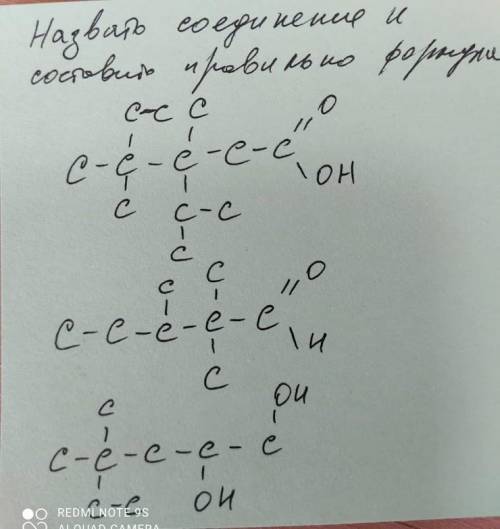 Назвать соединение и
составить правильно формулы
C-C C
O
C-C-C-C-C
OH
C C-C
C
C C
O
C-C-C-C-C
H
C
OH
C
C-C-C-C-C
C-C OH
REDMI NOTE 9S
AI QUAD CAMERA